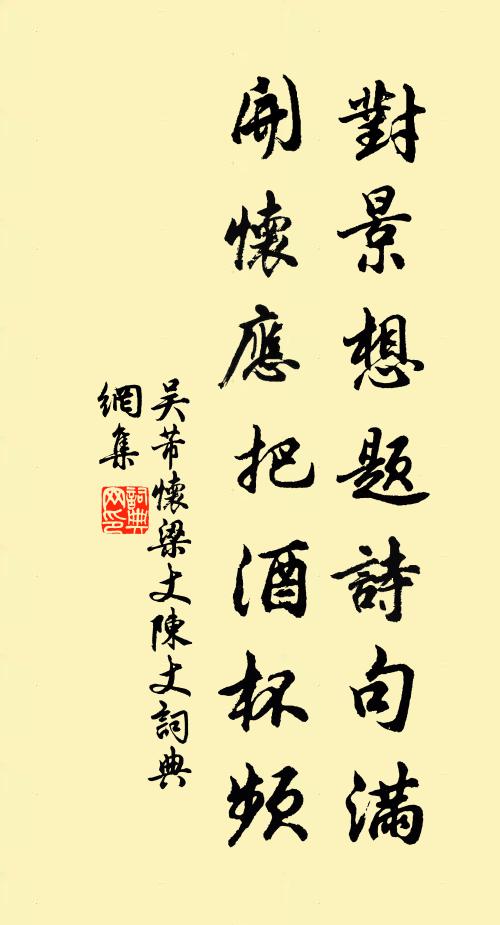 對景想題詩句滿
開懷應把酒杯頻
吳芾懷梁丈陳丈詞典
網集
詞典
网印